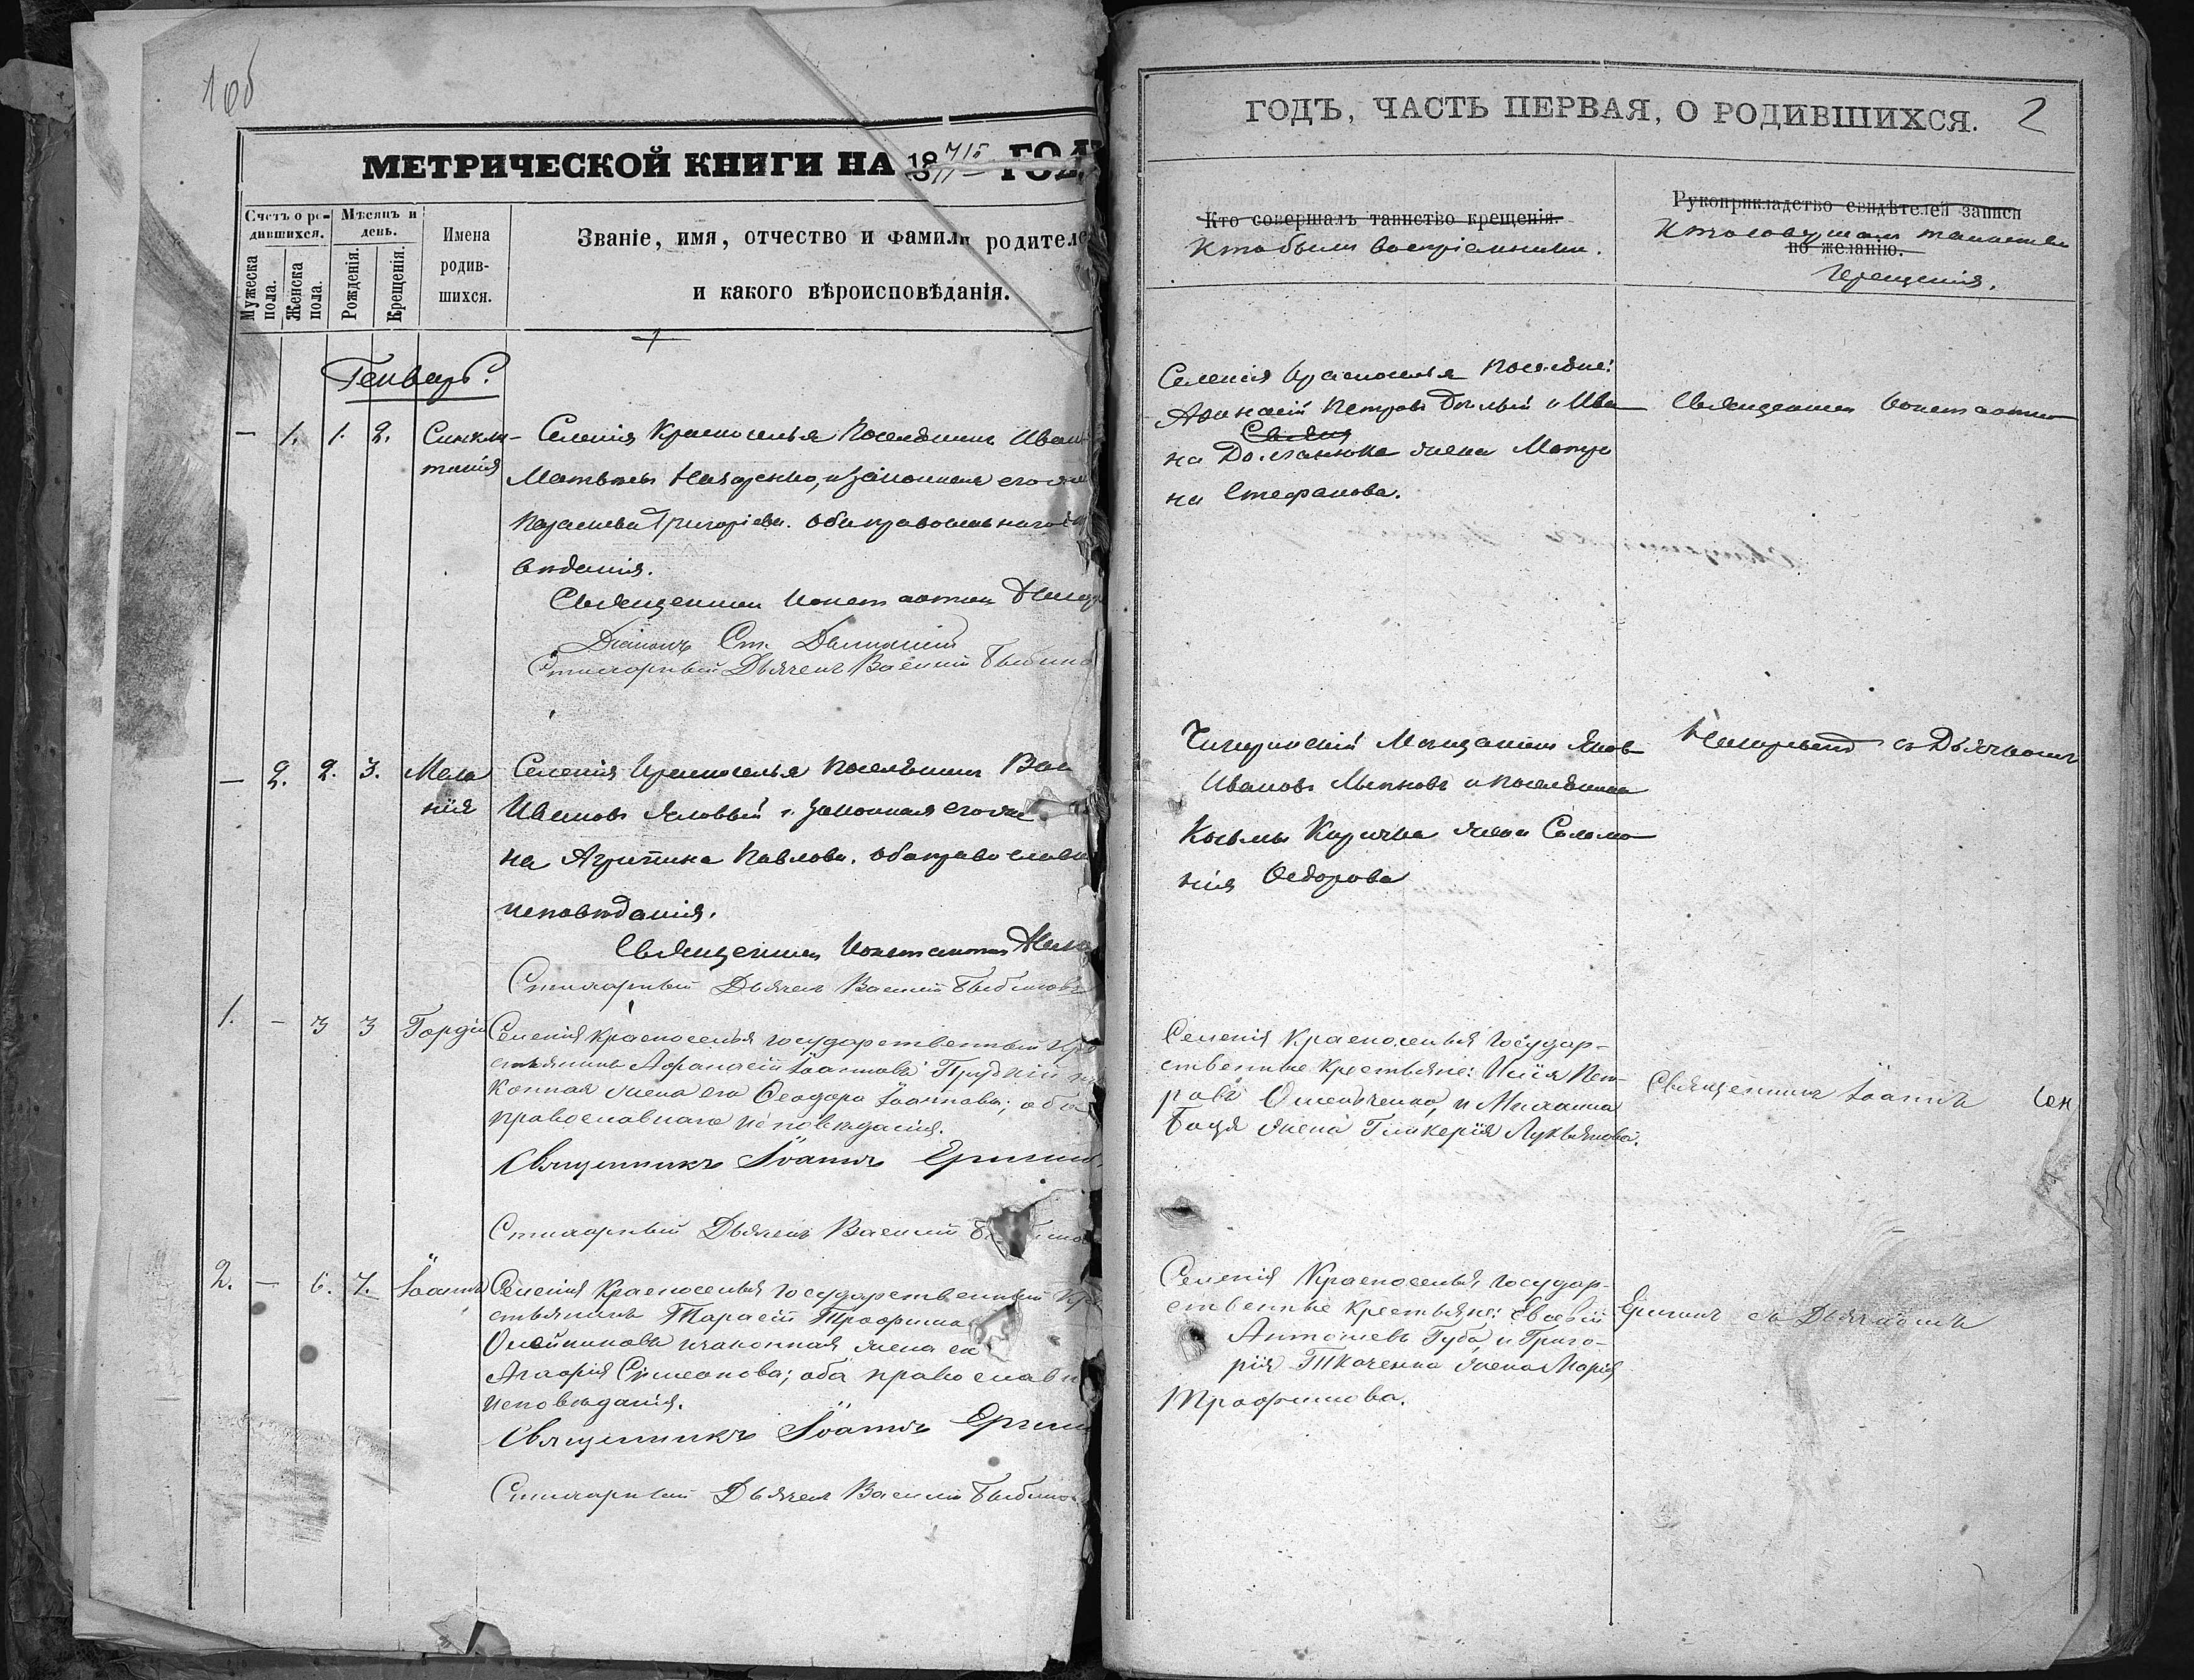 1об
МЕТРИЧЕСКОЙ КНИГИ НА 18
Счетъ о ро-
дившихся.
Мужеска
пола.
Женска
пола.
Мѣсяцъ и
день.
Рожденія.
Крещенія.
Имена
родив-
шихся.
Званіе, имя, отчество и фамилія родителе
и какого вѣроисповѣданія.
Генварь.
— 1. 1. 2. Синкли-
тикія
Селенія Красноселья Поселянинъ Иванъ
Матвѣевъ Назаренко, и законная его же
Параскева Григоріева. оба православнаго
вѣданія.
Священникъ Констант
Діаконъ Ст.
Стихарный Дьячекъ Василій
— 2. 2. 3. Мела
нія
Селенія Красноселья Поселянинъ Вас
Ивановъ Яловый и законная его же
на Агрипина Павлова. оба православн
исповѣданія.
Священникъ Константин
Стихарный Дьячекъ Василій
1. — 3 3 Гордій
Селенія Красноселья государственный Кре
стьянинъ Афанасій Іоанновъ и за
конная жена его Ѳеодора Іоаннова; оба
православнаго исповѣданія.
Священникъ Іоаннъ
Стихарный Дьячекъ Василій
2. — 6. 7. Іоаннъ
Селенія Красноселья государственный Кре
стьянинъ Тарасій Трофимо
Олейниковъ и законная жена его
Агафія Симеонова; оба православн
исповѣданія.
Священникъ Іоаннъ
Стихарный Дьячекъ Василій
ГОДЪ, ЧАСТЬ ПЕРВАЯ, О РОДИВШИХСЯ. 2
Кто совершалъ таинство крещенія.
Кто были воспріемники.
Рукоприкладство свидѣтелей записи
Кто совершалъ таинство
по желанію.
Крещенія.
Селенія Красноселья Поселяне:
Афанасій Петровъ и Ива
на жена Матро
на Стефанова.
Священникъ Константин
Чигиринскій Мещанинъ Яков
Ивановъ и поселянина
Козьмы жена Соломо
нія Ѳедорова
съ Дьячкомъ
Селенія Красноселья Государ-
ственные Крестьяне: Илія Пет-
ровъ Омельченко, и Михаила
жена Гликерія Лукьянова.
Священникъ Іоаннъ
Селенія Красноселья, государ-
ственные Крестьяне: Евсевій
Антоніевъ Губа, и Григо-
рія Ткаченка жена Марія
Трофимова.
съ Дьячкомъ